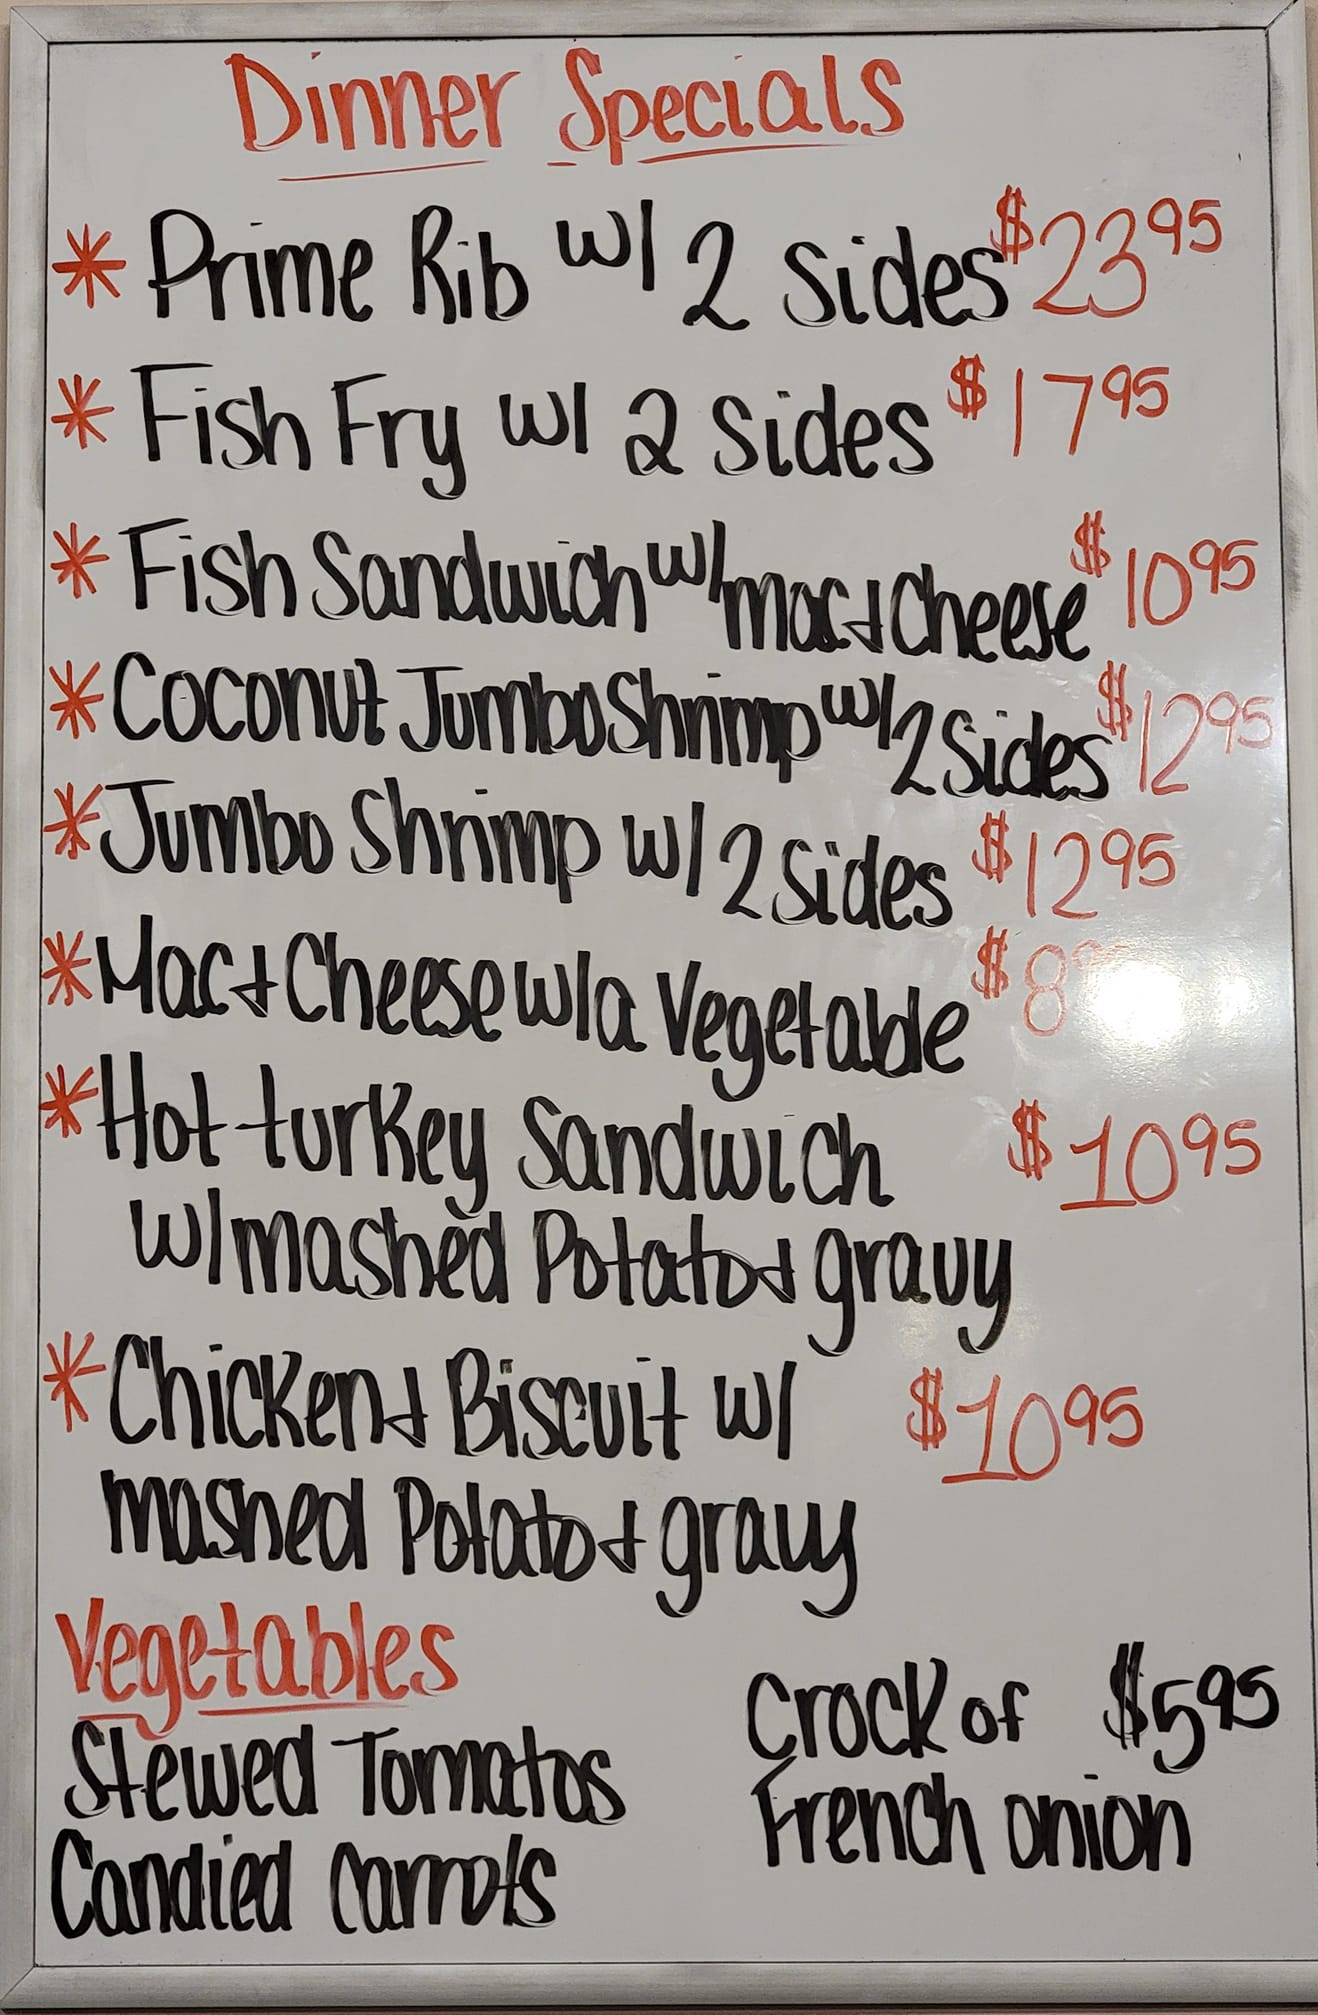 Dinner Specials
* Prime Rib w/ 2 sides $23 95
* Fish Fry w/ 2 sides $17 95
* Fish Sandwich w/ mac & cheese $10 95
* Coconut Jumbo Shrimp w/ 2 sides $12 95
* Jumbo Shrimp w/ 2 sides $12 95
* Mac & Cheese w/a Vegetable $8
* Hot turkey Sandwich $10 95
w/ mashed Potato & gravy
* Chicken & Biscuit w/ $10 95
mashed Potato & gravy
Vegetables
Stewed Tomatos
Candied Carrots
Crock of $5 95
French onion